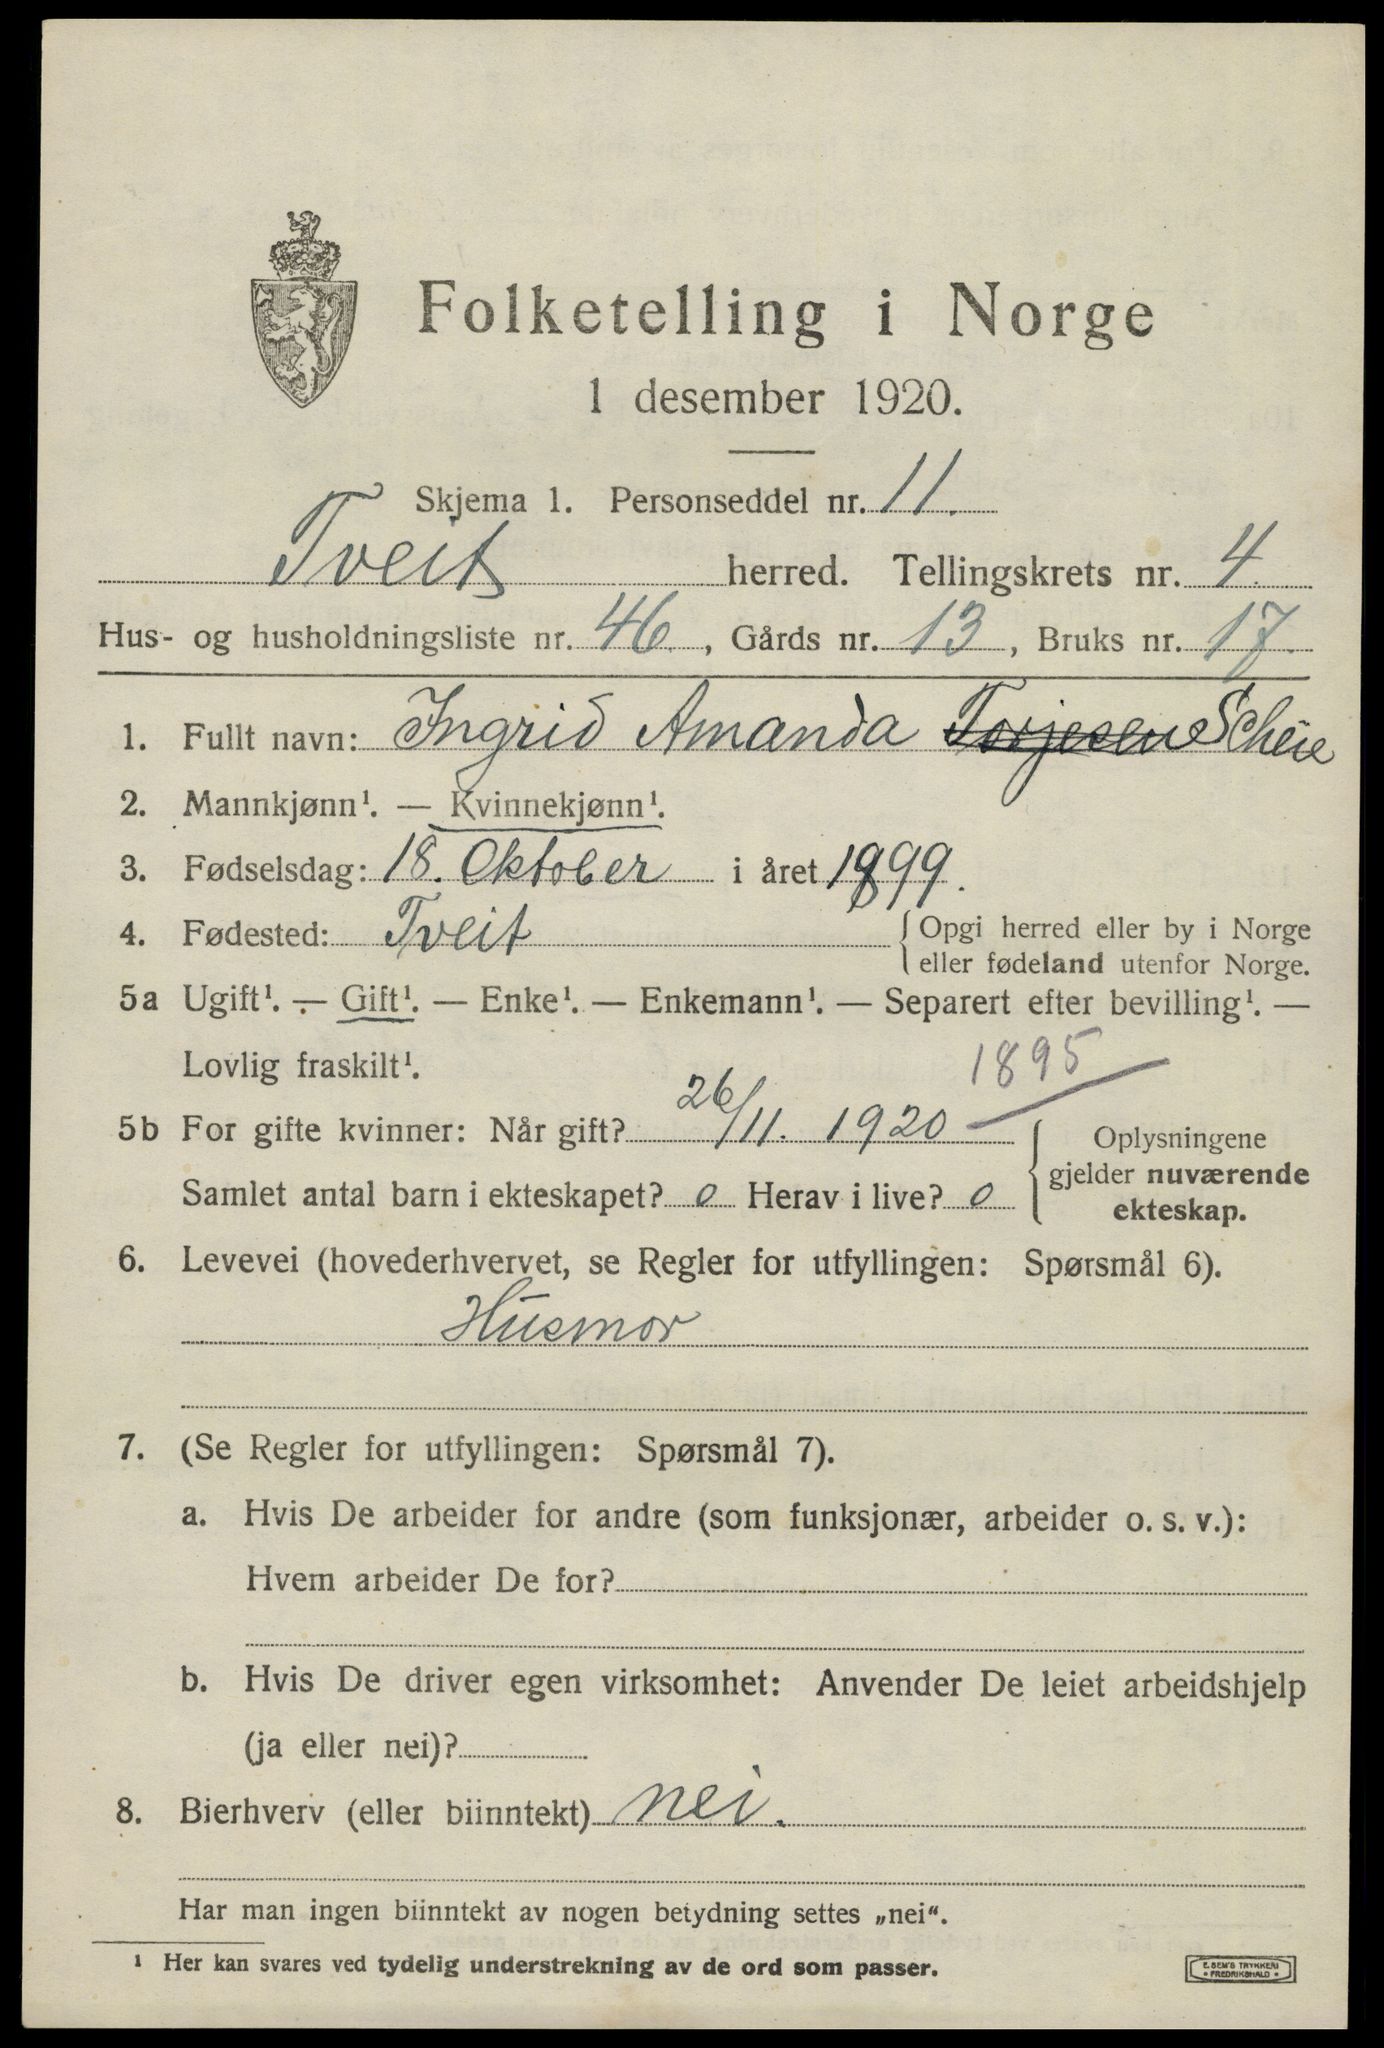 Folketelling i Norge
1 desember 1920.
Skjema 1. Personseddel nr. 11.
Tveit herred. Tellingskrets nr. 4.
Hus- og husholdningsliste nr. 46. , Gårds nr. 13 , Bruks nr. 17.
1. Fullt navn: Ingrid Amanda Torjesen Scheie
2. Mannkjønn¹. — Kvinnekjønn¹.
3. Fødselsdag: 18. Oktober i året 1899.
4. Fødested: Tveit { Opgi herred eller by i Norge
eller fødeland utenfor Norge.
5a Ugift¹. — Gift¹. — Enke¹. — Enkemann¹. — Separert efter bevilling¹. —
Lovlig fraskilt¹.
1895
5b For gifte kvinner: Når gift? 26/11. 1920 { Oplysningene
gjelder nuværende
ekteskap.
Samlet antal barn i ekteskapet? 0 Herav i live? 0
6. Levevei (hovederhvervet, se Regler for utfyllingen: Spørsmål 6).
Husmor
7. (Se Regler for utfyllingen: Spørsmål 7).
a. Hvis De arbeider for andre (som funksjonær, arbeider o. s. v.):
Hvem arbeider De for?
b. Hvis De driver egen virksomhet: Anvender De leiet arbeidshjelp
(ja eller nei)?
8. Bierhverv (eller biinntekt) nei.
Har man ingen biinntekt av nogen betydning settes „nei“.
¹ Her kan svares ved tydelig understrekning av de ord som passer.
E. SEM'S TRYKKERI
• FREDRIKSHALD •